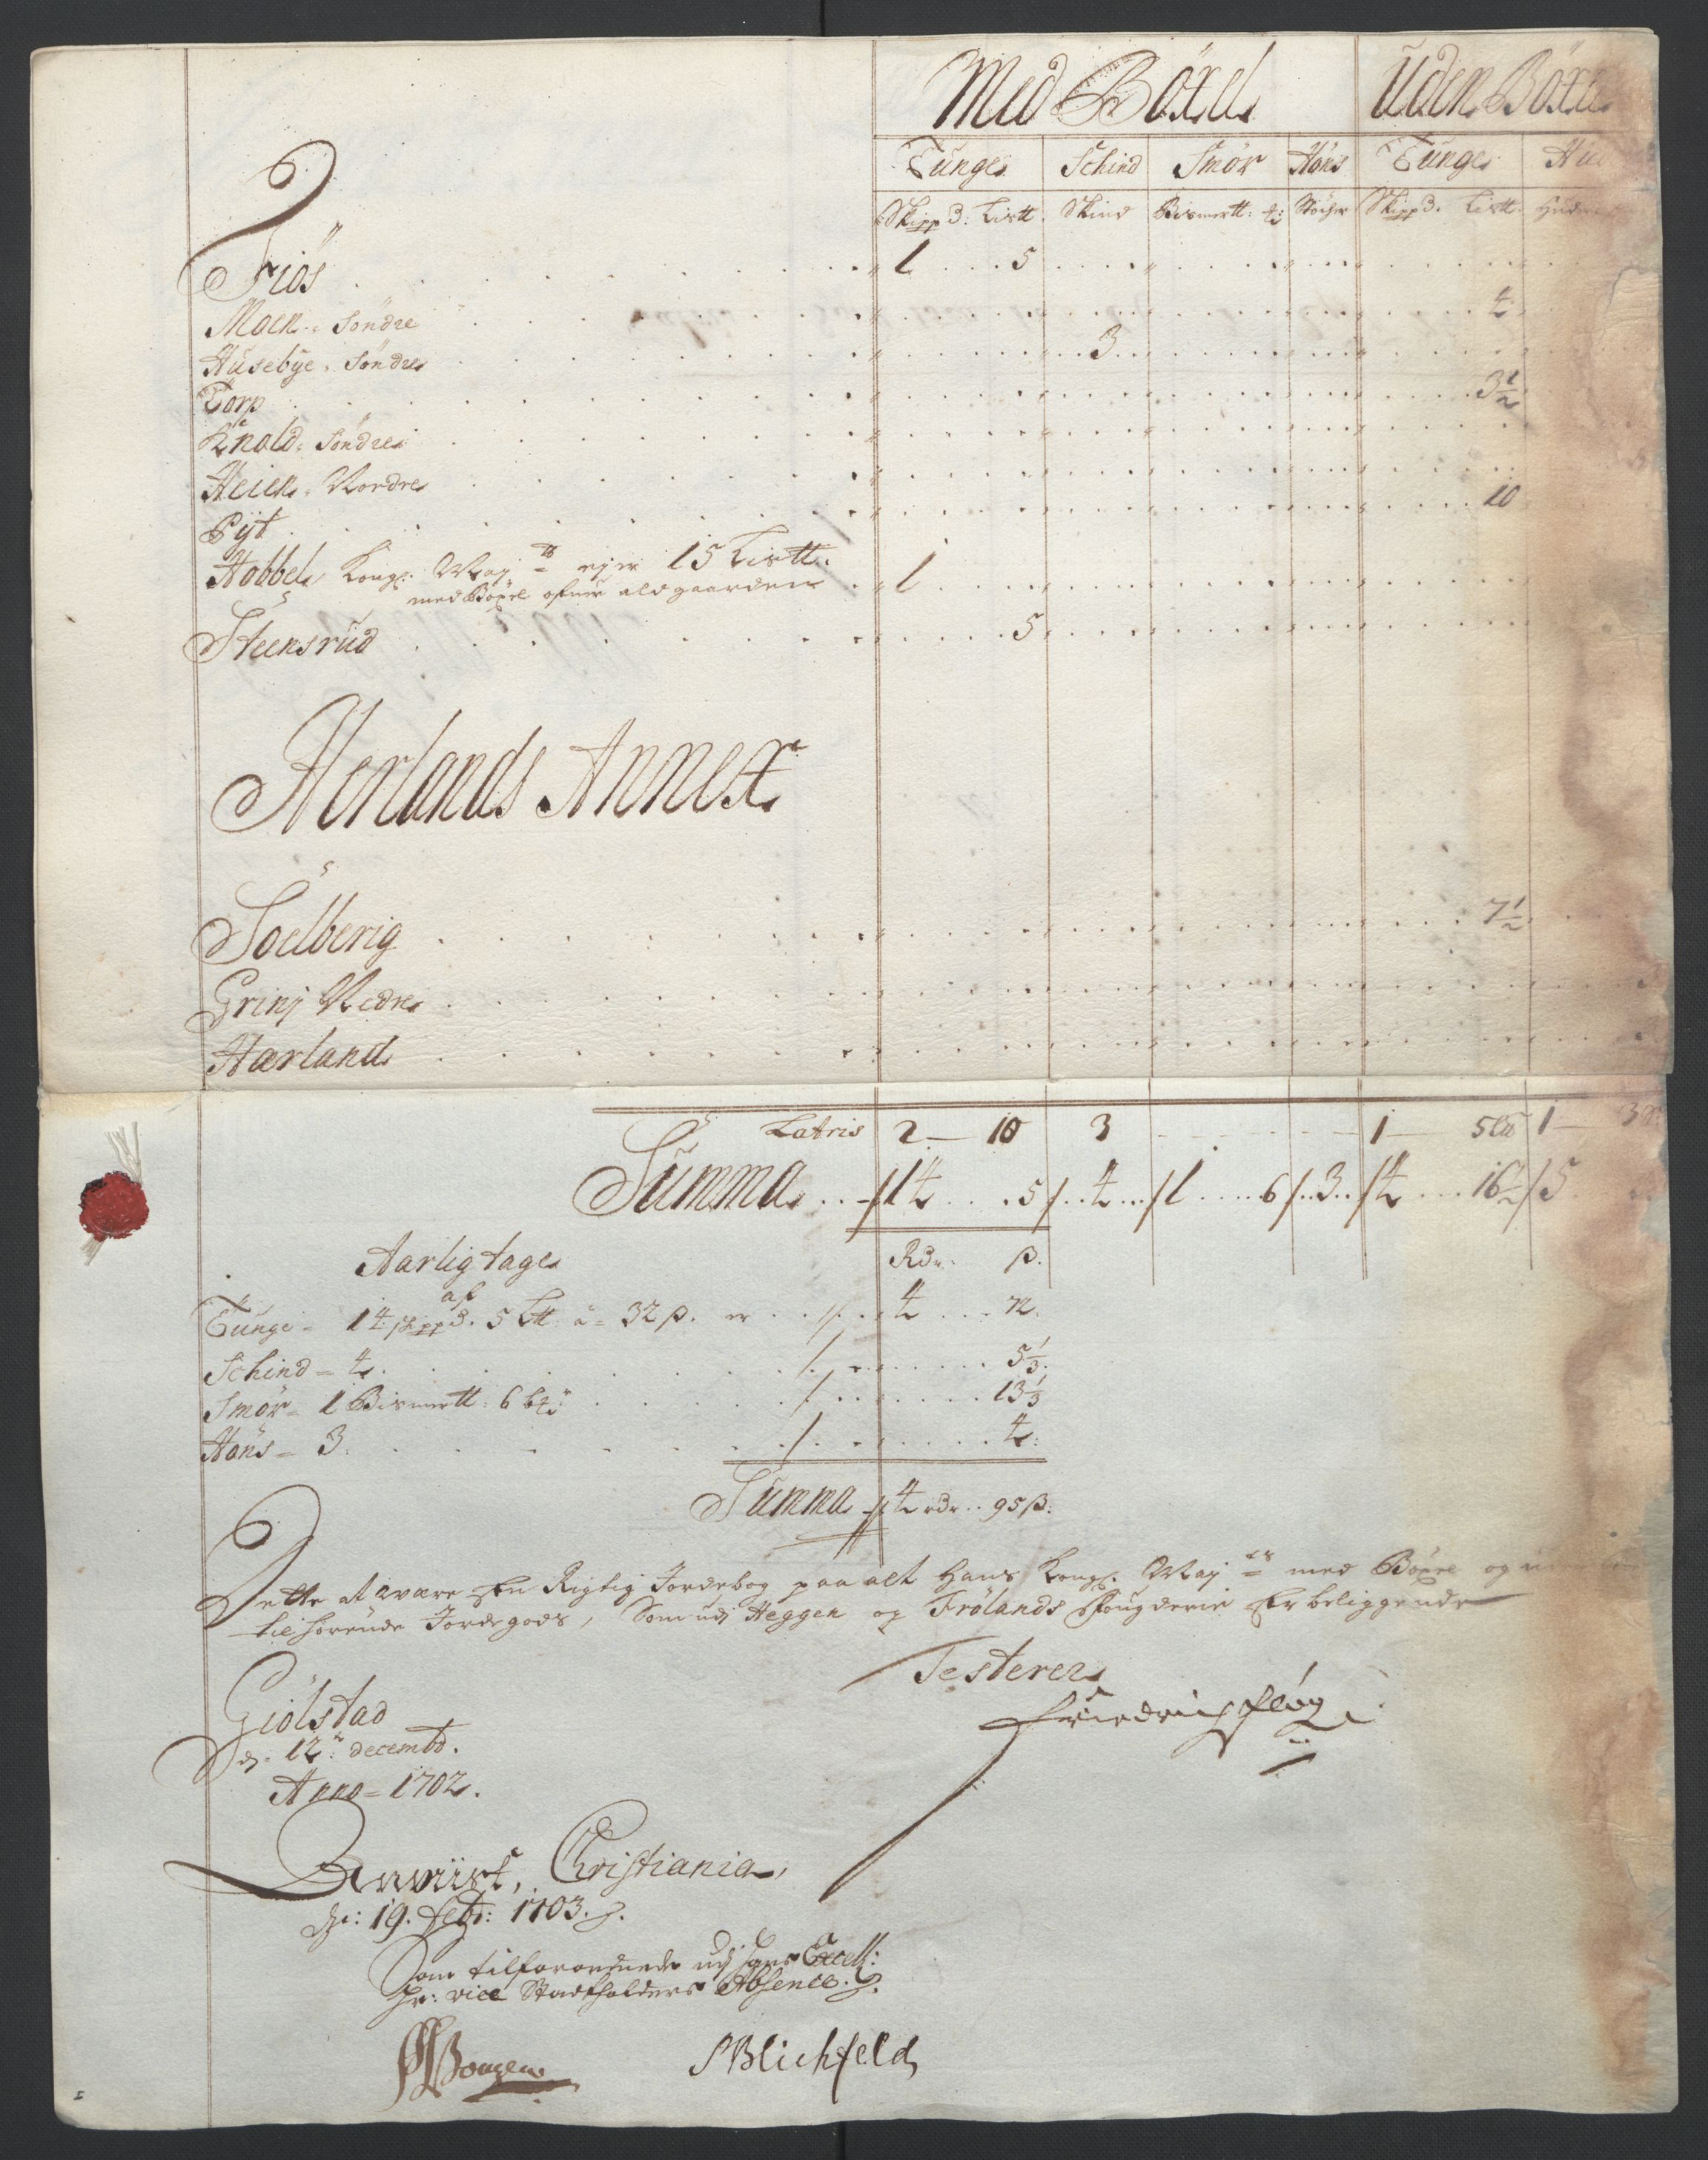 Med Böxel Uden Böxe
Tunge Schind Smör Höns Tunge Hu
Skippd: Listt. Skind Bismertt: Stöcher Skippd. Listt. Huder
Friös 1 5
Moen. Söndre 4
Husebye. Söndre 3
Torp 3½
Knold. Söndre
Heien. Nordre
Pyt 10
Hobbel Kong: May ts ejer 15 Listt.
med Böxel ofuer ald gaarden 1
Steensrud 5
Herlands Annex
Soelberig 7½
Grinj Nedre
Harland
Latris 2 — 10 3 1 — 1 — 3
Summa 14 5 4 1 6 3 4 16½ 5
Aarlig tage
Rdr. ß.
Tunge - 14 skippd. 5 Ltt. a 32 ß. er 4 72.
af
Schind - 4. 5⅓.
Smör - 1 Bismertt: 6 13⅓
Höns - 3. 4.
Summa 4 rdr. 95 ß:
Dette at være En Rigtig Jordebog paa alt Hans Kong: May ts med Böxel og
tilhörende Jordegods, Som udj Heggen og Frölands Fougderie Er beliggende
Testerer
Giölstad
d. 12: decembd.
Anno - 1702.
Friedrich Pflüg
Anviist, Christiania,
d: 19. Febr: 1703.
Som tilforordnede udj hans Excell:
Hr: vice Stadtholders Absence.
SBlichfeld